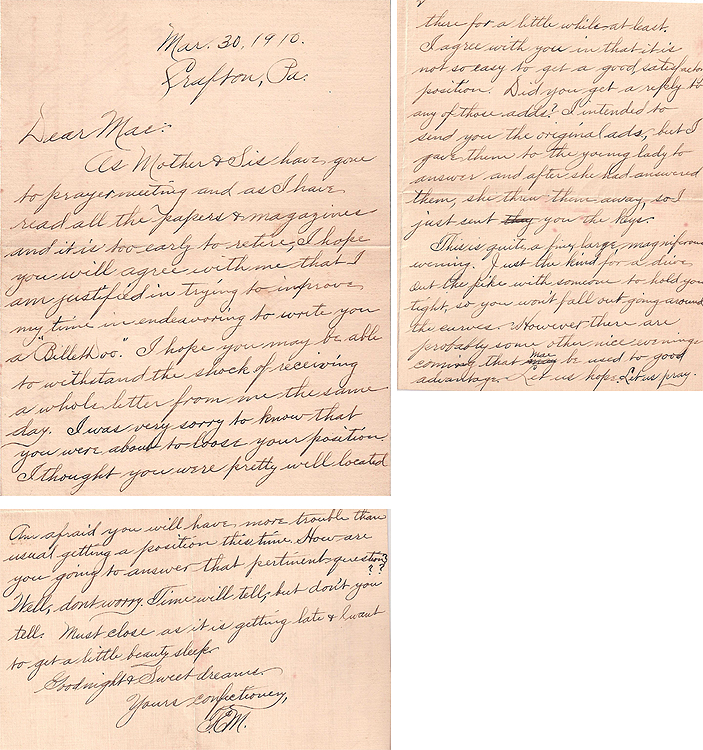 Mar. 30, 1910.
Grafton, Pa.
Dear Mae:
As Mother & Sis have gone
to prayermeeting and as I have
read all the papers & magazines
and it is too early to retire, I hope
you will agree with me that I
am justified in trying to improve
my time in endeavoring to write you
a "Billet doo". I hope you may be able
to withstand the shock of receiving
a whole letter from me the same
day. I was very sorry to know that
you were about to loose your position.
I thought you were pretty well located
2
there for a little while at least.
I agree with you in that it is
not so easy to get a good, satisfactory
position. Did you get a reply to
any of those adds? I intended to
send you the original ads, but I
gave them to the young lady to
answer and after she had answered
them, she threw them away, so I
just sent they you the keys.
This is quite a fine large, magniferous
evening. Just the kind for a dive
out the pike with someone to hold you
tight, so you won't fall out going around
the curves. However there are
probably some other nice evenings
coming that mae be used to good
advantage. Let us hope. Let us pray.
Am afraid you will have more trouble than
usual getting a position this time. How are
you going to answer that pertinent question?
? ?
Well, dont worry. Time will tell, but don't you
tell. Must close as it is getting late & I want
to get a little beauty sleep.
Goodnight & Sweet dreams.
Yours confectioney,